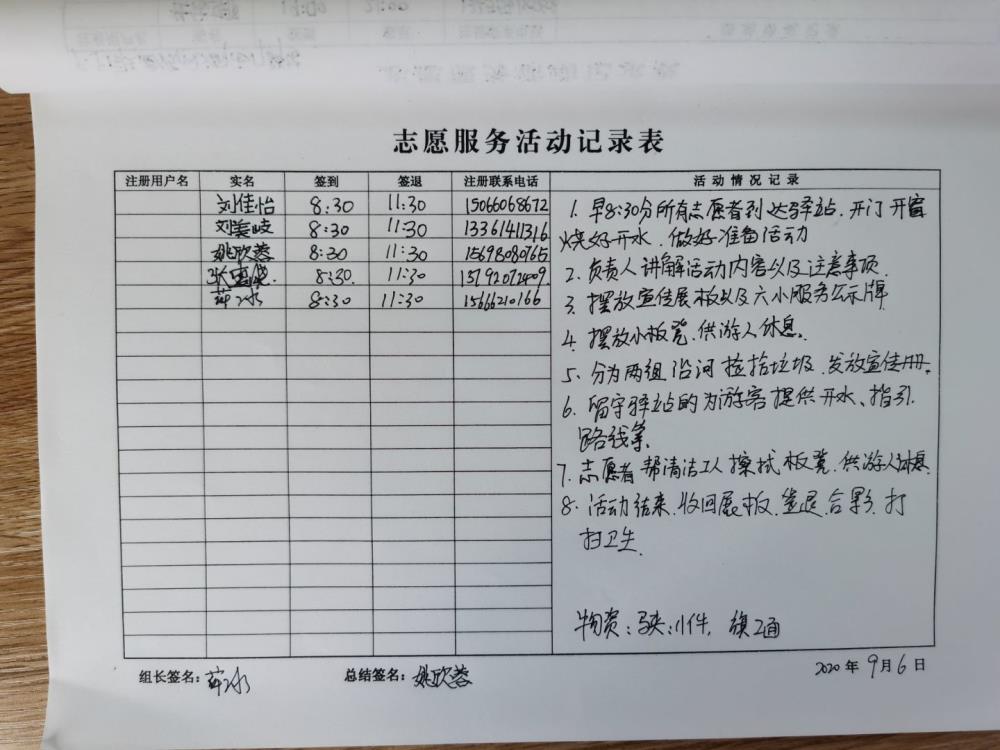 志愿服务活动记录表
注册用户名 实名 签到 签退 注册联系电话 活动情况记录
刘佳怡 8:30 11:30 15066068672
刘姜岐 8:30 11:30 13361411316
姚欣蓉 8:30 11:30 15698080765
张 8:30. 11:30 15792072409.
薛冰 8:30 11:30 15666210166
1. 早8:30分所有志愿者到达驿站.开门开窗
烧好开水、做好准备活动
2. 负责人讲解活动内容以及注意事项.
3. 摆放宣传展板以及六小服务公示牌
4. 摆放小板凳.供游人休息.
5. 分为两组沿河捡拾垃圾.发放宣传册.
6. 留守驿站的为游客提供开水、指引
路线等.
7. 志愿者帮清洁工人擦拭板凳.供游人休息.
8. 活动结束.收回展板.签退.合影.打
扫卫生.
物资:马夹:11件. 旗2面
组长签名:薛冰 总结签名:姚欣蓉 2020年9月6日